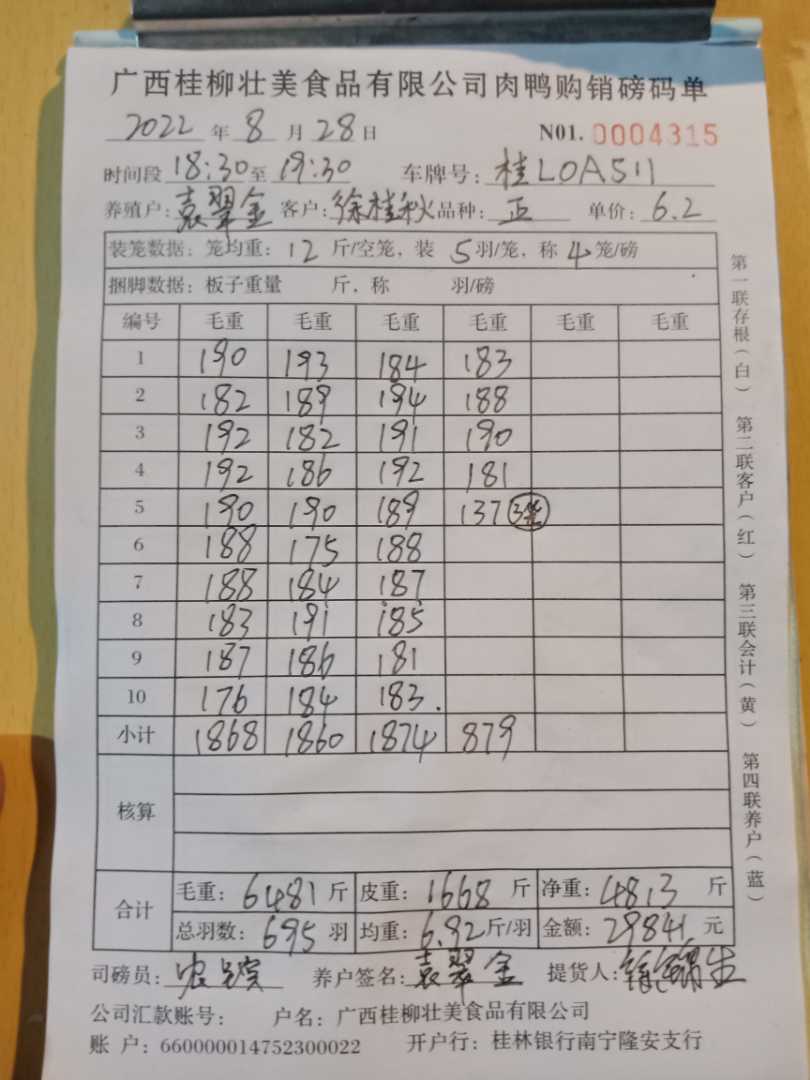 广西桂柳壮美食品有限公司肉鸭购销磅码单
2022 年 8 月 28 日 N01. 0004315
时间段 18:30 至 19:30 车牌号: 桂L0A511
养殖户: 袁翠金 客户: 徐桂秋 品种: 正 单价: 6.2
装笼数据: 笼均重: 12 斤/空笼, 装 5 羽/笼, 称 4 笼/磅
捆脚数据: 板子重量 斤, 称 羽/磅
编号 毛重 毛重 毛重 毛重 毛重 毛重
1 190 193 184 183
2 182 189 194 188
3 192 182 191 190
4 192 186 192 181
5 190 190 189 137 3笼
6 188 175 188
7 188 184 187
8 183 191 185
9 187 186 181
10 176 184 183.
小计 1868 1860 1874 879
核算
合计 毛重: 6481 斤 皮重: 1668 斤 净重: 4813 斤
总羽数: 695 羽 均重: 6.92 斤/羽 金额: 29841 元
司磅员: 养户签名: 袁翠金 提货人:
公司汇款账号: 户名: 广西桂柳壮美食品有限公司
账 户: 660000014752300022 开户行: 桂林银行南宁隆安支行
第一联存根(白) 第二联客户(红) 第三联会计(黄) 第四联养户(蓝)